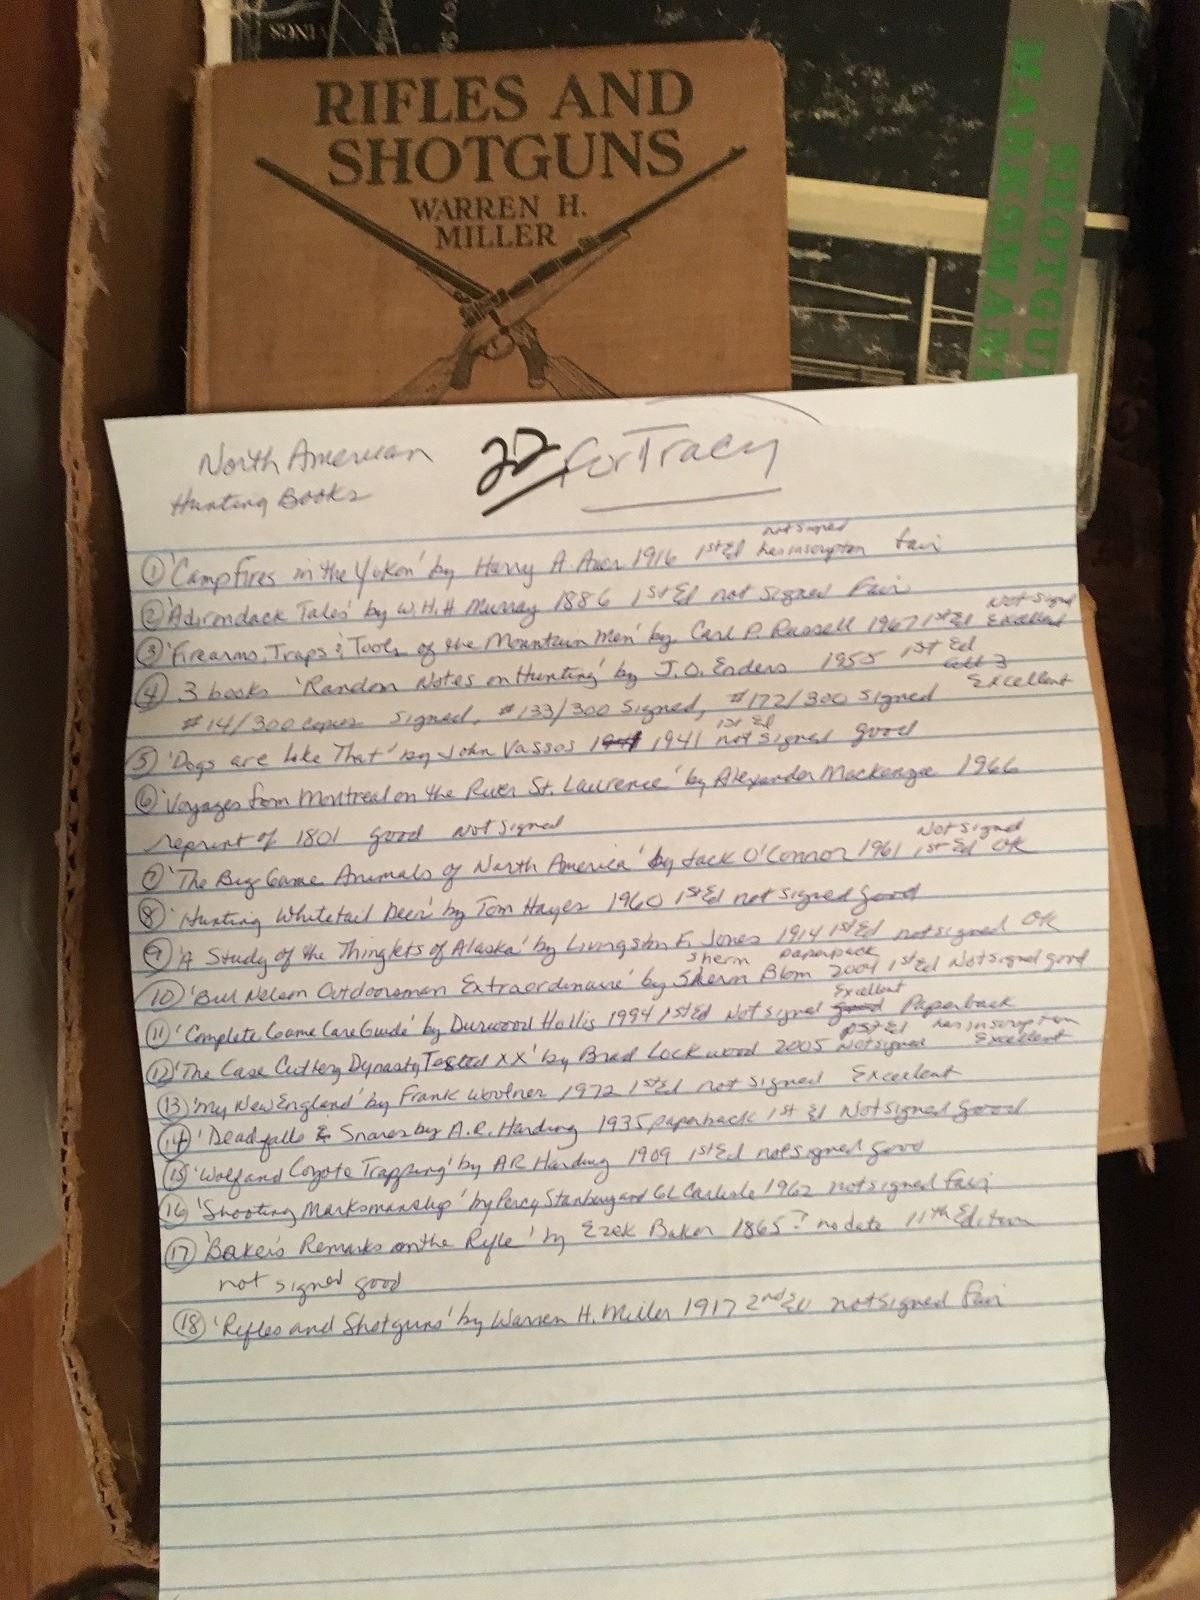 RIFLES AND
SHOTGUNS
WARREN H.
MILLER
SHOTGU
MARKSMAN
North American
Hunting Books
22 for Tracy
not signed
① 'Campfires in the Yukon' by Harry A. Auer 1916 1st Ed has inscription fair
② 'Adirondack Tales' by W.H.H Murray 1886 1st Ed not signed Fair
Not Signed
③ 'Firearms, Traps & Tools of the Mountain Men' by Carl P. Russell 1967 1st Ed Excellent
④ 3 books 'Random Notes on Hunting' by J.O. Enders 1955 1st Ed
all 3
Excellent
#14/300 copies signed, #133/300 signed, #172/300 signed
1st Ed
⑤ 'Dogs are Like That' by John Vassos 1941 not signed good
⑥ 'Voyages from Montreal on the River St. Laurence' by Alexander Mackenzie 1966
reprint of 1801 good not signed
Not Signed
⑦ 'The Big Game Animals of North America' by Jack O'Connor 1961 1st Ed OK
⑧ 'Hunting Whitetail Deer' by Tom Hayes 1960 1st Ed not signed good
⑨ 'A Study of the Thinglets of Alaska' by Livingston F. Jones 1914 1st Ed not signed OK
Sherm paperback
⑩ 'Bill Nelson Outdoorsman Extraordinaire' by Sherm Blom 2001 1st Ed Not signed good
Excellent
⑪ 'Complete Game Care Guide' by Durwood Hollis 1994 1st Ed Not signed good Paperback
1st Ed has inscription
⑫ 'The Case Cutlery Dynasty Tested XX' by Brad Lockwood 2005 Not signed Excellent
⑬ 'My New England' by Frank Woolner 1972 1st Ed not signed Excellent
⑭ 'Deadfalls & Snares by A.R. Harding 1935 paperback 1st Ed Not signed good
⑮ 'Wolf and Coyote Trapping' by AR Harding 1909 1st Ed not signed good
⑯ 'Shooting Marksmanship' by Percy Stanbury and GL Carlisle 1962 not signed fair
⑰ 'Baker's Remarks on the Rifle' by Ezek Baker 1865? no date 11th Edition
not signed good
⑱ 'Rifles and Shotguns' by Warren H. Miller 1917 2nd Ed not signed fair